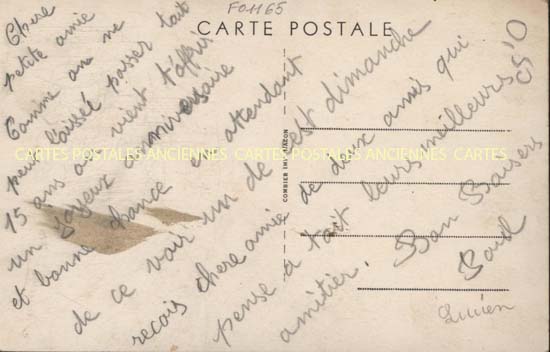 F01165
CARTE POSTALE
Chere
petite amie
Comme on ne
peut laissée passer tait
15 ans on vient t'offrir
un Joyeux anniversaire
et bonne chance en attendant
de ce voir un de cest dimanche
recois chere amie de deux amis qui
pense a toit leurs meilleurs
amitier. Bon Baisers
Paul
Lucien
COMBIER IMP. MACON
CARTES POSTALES ANCIENNES CARTES POSTALES ANCIENNES CARTES